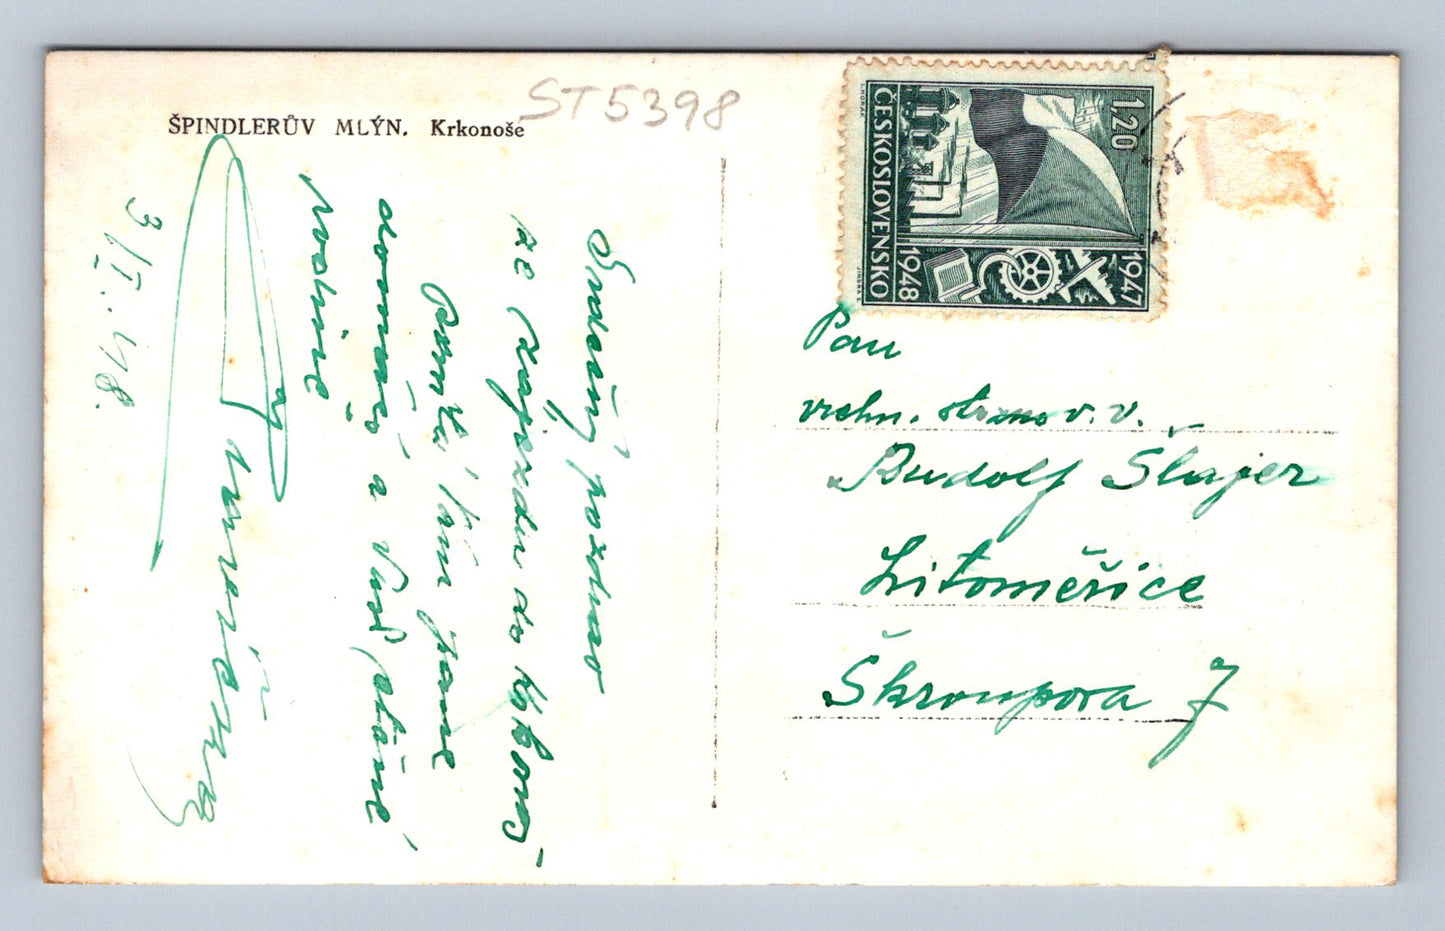 ŠPINDLERŮV MLÝN. Krkonoše
ST5398
3/I. 48.
Srdečný pozdrav
ze zájezdu do Krkonoš
Vám pane
a Vaší
rodině
ČESKOSLOVENSKO
1,20
1947
1948
Pan
vrchn. v. v.
Rudolf Šlajer
Litoměřice
Škroupova 7